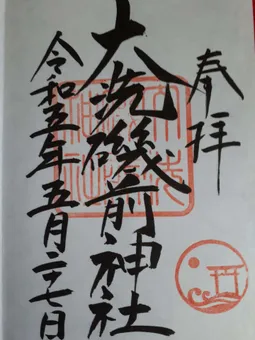 奉拝
大洗磯前神社
令和五年五月二十七日